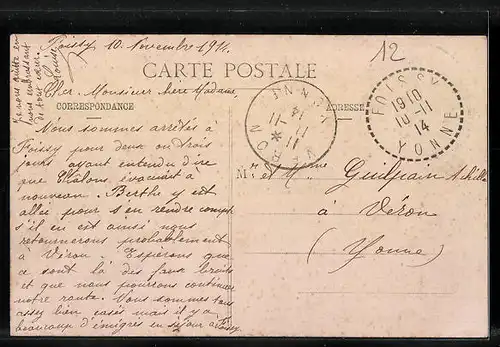 Foissy 10. Novembre 1914.
12
CARTE POSTALE
Cher Monsieur chère Madame,
CORRESPONDANCE
ADRESSE
Nous sommes arrêtés à
Foissy pour deux ou trois
jours ayant entendu dire
que Châlons évacuait à
nouveau. Berthe y est
allée pour s'en rendre compte
s'il en est ainsi nous
retournerons probablement
à Véron. Espérons que
ce sont là des faux bruits
et que nous pourrons continuer
notre route. Nous sommes tous
assez bien casés mais il y a
beaucoup d'émigrés en séjour à Foissy.
Je vous quitte en
vous embrassant
de tout cœur.
FOISSY
1910
10-11
14
YONNE
VÉRON
YONNE
11
11
14
Mr et Mme Guilpain Achille
à Véron
(Yonne)